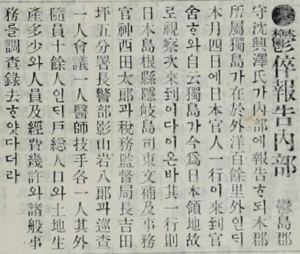 ●鬱倅報告內部 鬱島郡
守沈興澤氏가內部에報告ᄒᆞ되本郡
所屬獨島가在於外洋百餘里外인ᄃᆡ
本月四日에日本官人一行이來到官
舍ᄒᆞ야自云獨島가今爲日本領地故
로視察次來到이다이온바其一行則
日本島根縣隱岐島司東文補及事務
官神西田太郎과稅務監督局長吉田
坪五分署長警部影山岩八郎과巡查
一人會議一人醫師技手各一人其外
隨員十餘人인ᄃᆡ戶總人口와土地生
產多少와人員及經費幾許와諸般事
務를調查錄去ᄒᆞ얏다더라